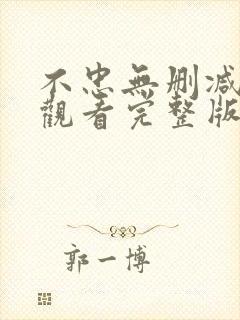 不忠無刪減
觀看完整版
郭一博